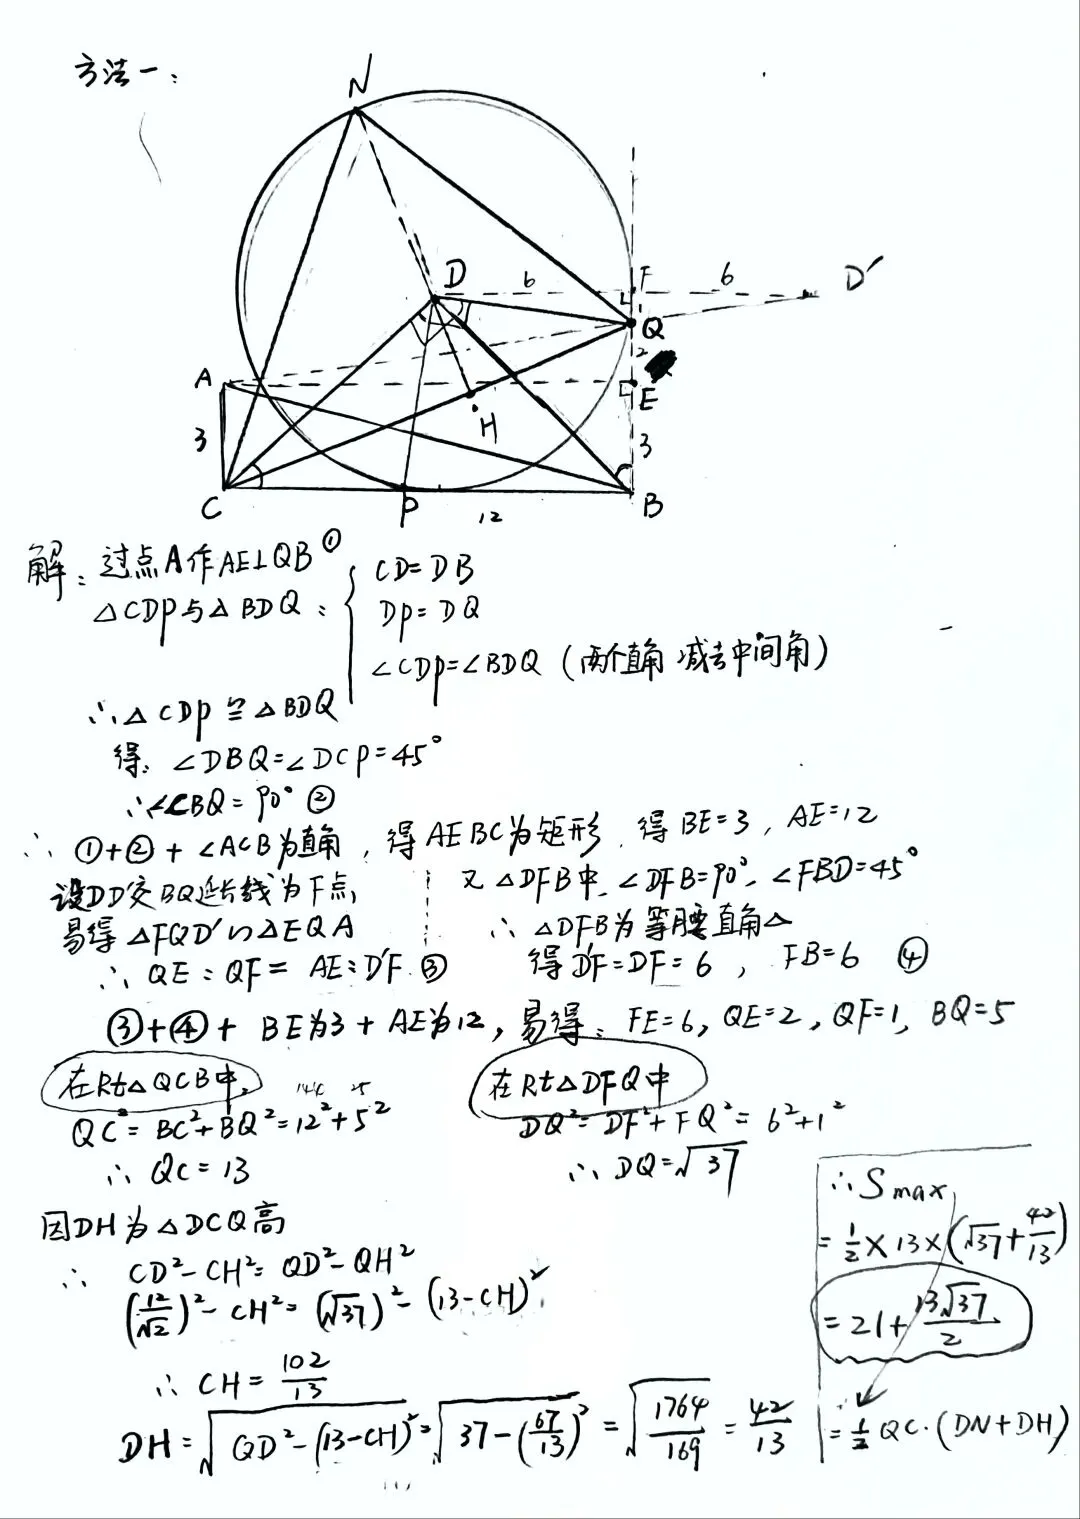 方法一：
N
D
6
F
6
D′
1
Q
2
A
E
H
3
3
C
P
12
B
解：过点A作AE⊥QB①
△CDP与△BDQ：
CD=DB
DP=DQ
∠CDP=∠BDQ（两个直角减去中间角）
∴△CDP≌△BDQ
得：∠DBQ=∠DCP=45°
∴∠CBQ=90°②
∴①+②+∠ACB为直角，得AEBC为矩形，得BE=3，AE=12
设DD′交BQ延长线为F点，
易得△FQD′∽△EQA
∴QE：QF=AE：D′F③
又△DFB中，∠DFB=90°，∠FBD=45°
∴△DFB为等腰直角△
得D′F=DF=6，FB=6 ④
③+④+BE为3+AE为12，易得：FE=6，QE=2，QF=1，BQ=5
在Rt△QCB中，
144 25
QC²=BC²+BQ²=12²+5²
∴QC=13
在Rt△DFQ中
DQ²=DF²+FQ²=6²+1²
∴DQ=√37
因DH为△DCQ高
∴CD²-CH²=QD²-QH²
(12/√2)²-CH²=(√37)²-(13-CH)²
∴CH=102/13
DH=√(QD²-(13-CH)²)=√(37-(67/13)²)=√(1764/169)=42/13
∴Smax
=1/2×13×(√37+42/13)
=21+13√37/2
=1/2QC·(DN+DH)